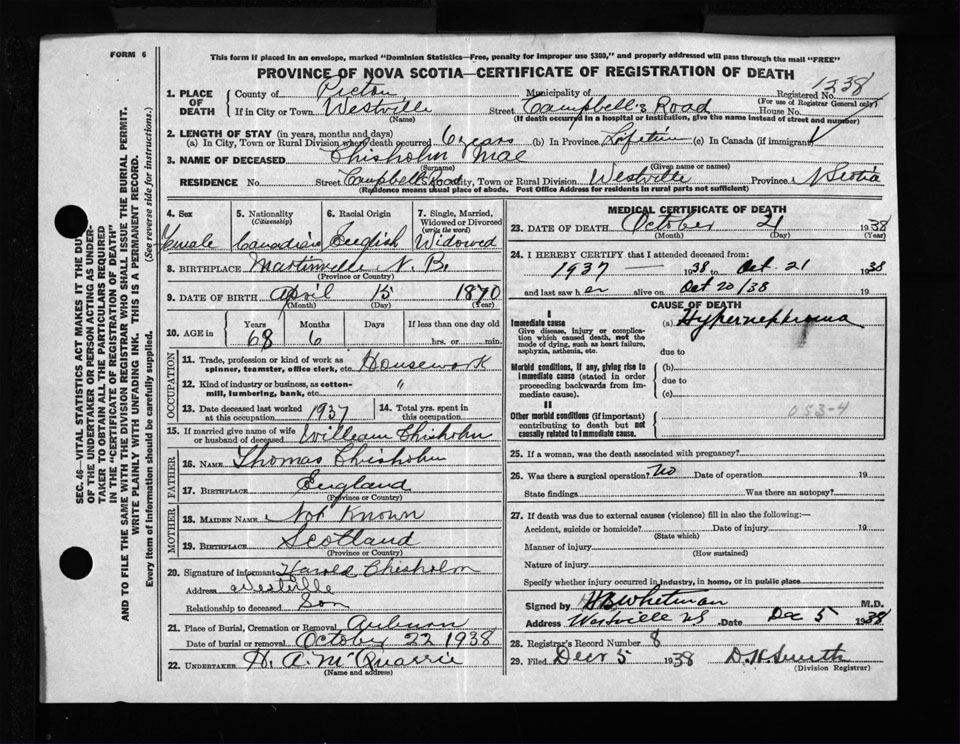 FORM 6
This form if placed in an envelope, marked "Dominion Statistics—Free, penalty for improper use $300," and properly addressed will pass through the mail "FREE"
PROVINCE OF NOVA SCOTIA—CERTIFICATE OF REGISTRATION OF DEATH
1. PLACE OF DEATH
County of Pictou Municipality of Registered No. 1238
(For use of Registrar General only)
If in City or Town Westville Street Campbell's Road House No.
(Name) (If death occurred in a hospital or institution, give the name instead of street and number)
2. LENGTH OF STAY (in years, months and days)
(a) In City, Town or Rural Division where death occurred 6 years (b) In Province Lifetime (c) In Canada (if immigrant)
3. NAME OF DECEASED Chisholm Mae
(Surname) (Given name or names)
RESIDENCE No. Street Campbells Road City, Town or Rural Division Westville Province N Scotia
(Residence means usual place of abode. Post Office Address for residents in rural parts not sufficient)
4. Sex Female
5. Nationality (Citizenship) Canadian
6. Racial Origin English
7. Single, Married, Widowed or Divorced (write the word) Widowed
8. BIRTHPLACE Martinville N. B.
(Province or Country)
9. DATE OF BIRTH April 15 1870
(Month) (Day) (Year)
10. AGE in Years Months Days If less than one day old
68 6 hrs. or min.
OCCUPATION
11. Trade, profession or kind of work as spinner, teamster, office clerk, etc. Housework
12. Kind of industry or business, as cotton-mill, lumbering, bank, etc. "
13. Date deceased last worked at this occupation 1937
14. Total yrs. spent in this occupation
15. If married give name of wife or husband of deceased William Chisholm
FATHER
16. NAME Thomas Chisholm
17. BIRTHPLACE England
(Province or Country)
MOTHER
18. MAIDEN NAME Not Known
19. BIRTHPLACE Scotland
(Province or Country)
20. Signature of informant Harold Chisholm
Address Westville
Relationship to deceased Son
21. Place of Burial, Cremation or Removal Auburn
Date of burial or removal October 22 1938
22. UNDERTAKER H. A. McQuarrie
(Name and address)
MEDICAL CERTIFICATE OF DEATH
23. DATE OF DEATH October 21 1938
(Month) (Day) (Year)
24. I HEREBY CERTIFY that I attended deceased from:
1937 — 1938 to Oct. 21 1938
and last saw her alive on Oct 20/38 19
CAUSE OF DEATH
I
Immediate cause
Give disease, injury or complication which caused death, not the mode of dying, such as heart failure, asphyxia, asthenia, etc.
(a) Hypernephroma
due to
Morbid conditions, if any, giving rise to immediate cause (stated in order proceeding backwards from immediate cause).
(b)
due to
(c)
II
Other morbid conditions (if important) contributing to death but not causally related to immediate cause.
053-4
25. If a woman, was the death associated with pregnancy?
26. Was there a surgical operation? No Date of operation 19
State findings Was there an autopsy?
27. If death was due to external causes (violence) fill in also the following:—
Accident, suicide or homicide? Date of injury 19
(State which)
Manner of injury
(How sustained)
Nature of injury
Specify whether injury occurred in industry, in home, or in public place
Signed by Whitman M.D.
Address Westville NS Date Dec 5 1938
28. Registrar's Record Number 8
29. Filed Decr 5 1938 D. H. Smith
(Division Registrar)
SEC. 46—VITAL STATISTICS ACT MAKES IT THE DUTY
OF THE UNDERTAKER OR PERSON ACTING AS UNDER-
TAKER TO OBTAIN ALL THE PARTICULARS REQUIRED
IN THE "CERTIFICATE OF REGISTRATION OF DEATH"
AND TO FILE THE SAME WITH THE DIVISION REGISTRAR WHO SHALL ISSUE THE BURIAL PERMIT.
WRITE PLAINLY WITH UNFADING INK. THIS IS A PERMANENT RECORD.
Every item of information should be carefully supplied. (See reverse side for instructions.)